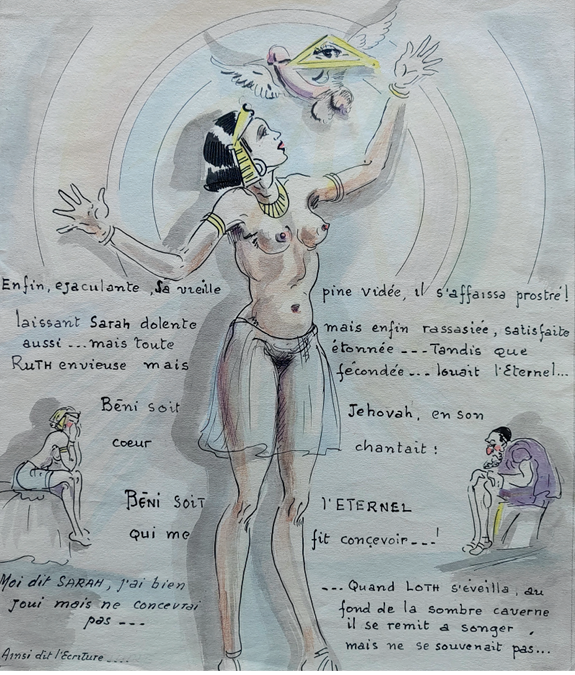 Enfin, ejaculante, sa vieille pine vidée, il s'affaissa prostré!
laissant Sarah dolente mais enfin rassasiée, satisfaite
aussi ... mais toute étonnée --- Tandis que
RuTH envieuse mais fécondée --- louait l'Eternel...
Béni soit Jehovah, en son
coeur chantait :
BÉNI SOIT l'ETERNEL
qui me fit conçevoir ---!
Moi dit SARAH, j'ai bien
joui mais ne concevrai
pas ---
Ainsi dit l'Ecriture ....
--- Quand LOTH s'éveilla, au
fond de la sombre caverne
il se remit a songer,
mais ne se souvenait pas...